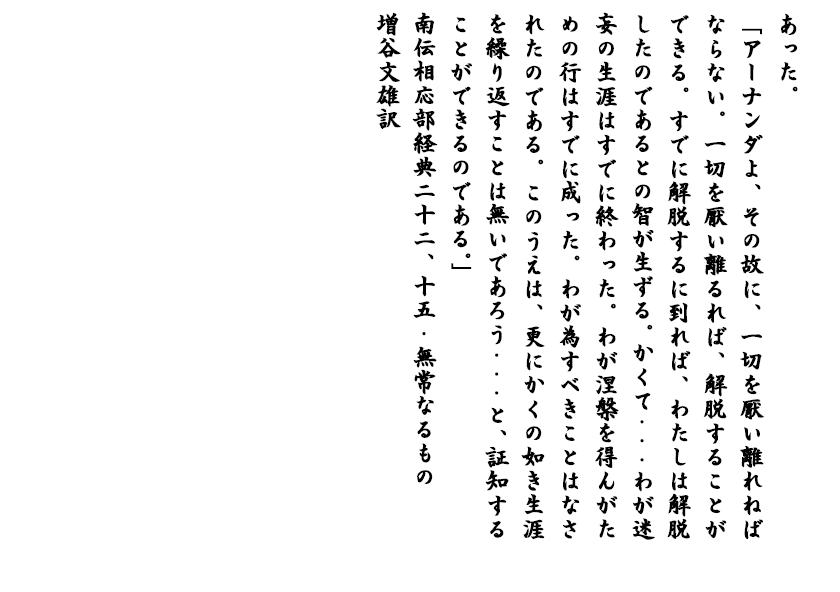 あった。
「アーナンダよ、その故に、一切を厭い離れねば
ならない。一切を厭い離るれば、解脱することが
できる。すでに解脱するに到れば、わたしは解脱
したのであるとの智が生ずる。かくて・・・わが迷
妄の生涯はすでに終わった。わが涅槃を得んがた
めの行はすでに成った。わが為すべきことはなさ
れたのである。このうえは、更にかくの如き生涯
を繰り返すことは無いであろう・・・と、証知する
ことができるのである。」
南伝相応部経典二十二、十五・無常なるもの
増谷文雄訳